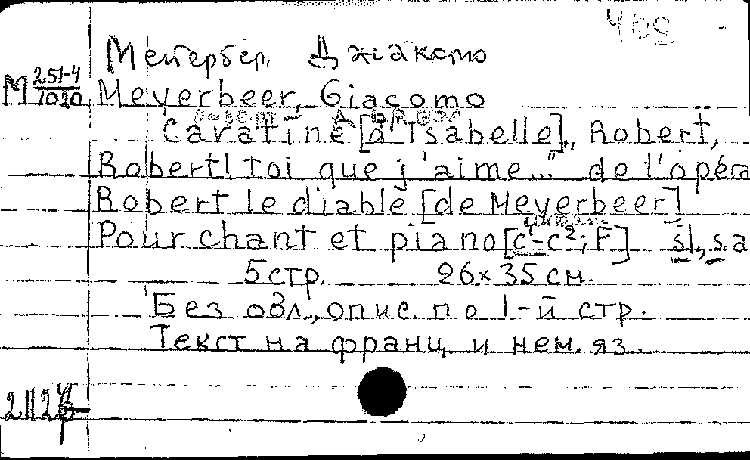 Мейербер, Джакомо
М 251-4/1020 Meyerbeer, Giacomo
Cavatine [d'Isabelle] „Robert,
Robert! toi que j'aime..." de l'opéra
Robert le diable [de Meyerbeer]
Pour chant et piano [c¹-c²; F] s.l., s.a
5 стр. 26×35 см.
Без обл., опис. по 1-й стр.
Текст на франц. и нем. яз.